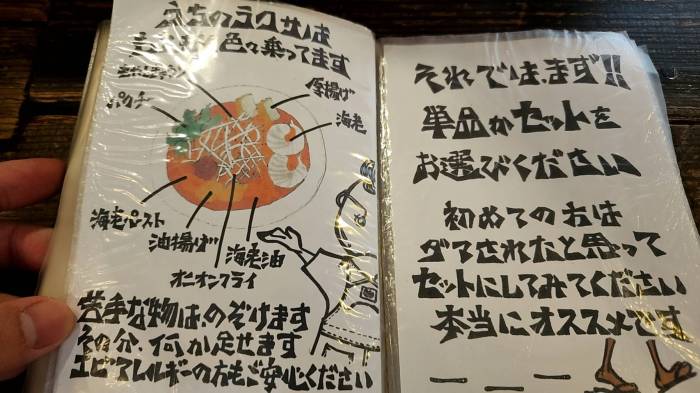 うちのラクサは
色々乗ってます
パクチー
厚揚げ
海老
海老ペースト
油揚げ
海老油
オニオンフライ
苦手な物は、のぞけます
その分、何か足せます
エビアレルギーの方もご安心ください
それではまず!!
単品かセットを
お選びください
初めての方は
ダマされたと思って
セットにしてみてください
本当にオススメです